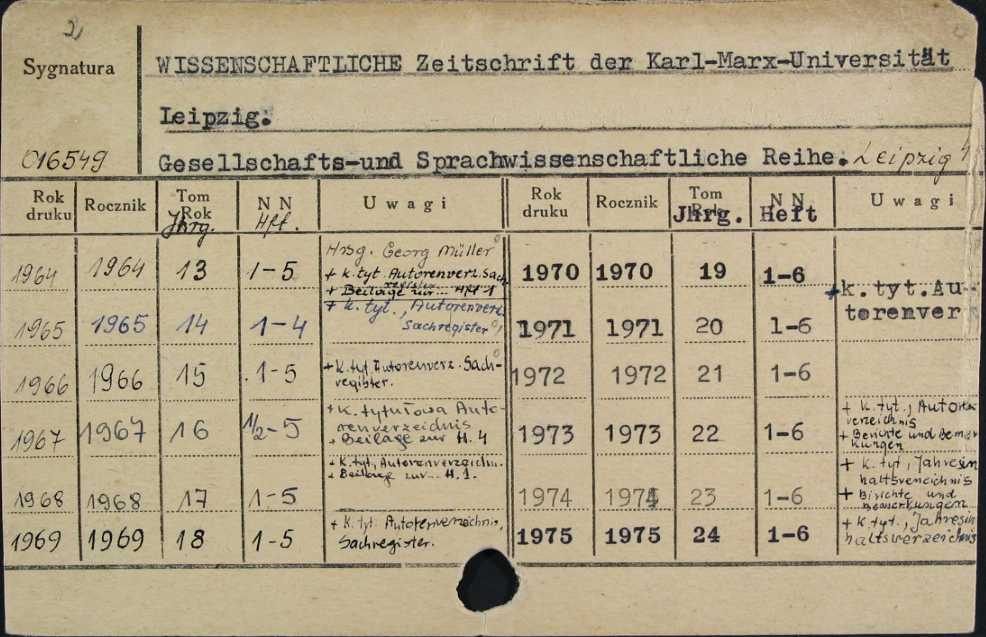 2
Sygnatura
WISSENSCHAFTLICHE Zeitschrift der Karl-Marx-Universität
Leipzig.
016549
Gesellschafts-und Sprachwissenschaftliche Reihe. Leipzig
Rok druku Rocznik Tom Rok Jhrg. N N Hft. Uwagi
1964 1964 13 1-5 Hrsg. Georg Müller
+ k. tyt. Autorenverz. Sach
register
+ Beilage zur... Hft 1
1965 1965 14 1-4 + k. tyt., Autorenverz.
Sachregister
1966 1966 15 1-5 + k. tyt. Autorenverz. Sach-
register.
1967 1967 16 1/2-5 + k. tytułowa Auto-
renverzeichnis
+ Beilage zur H. 4
1968 1968 17 1-5 + k. tyt., Autorenverzeichn.
+ Beilage zur... H. 1.
1969 1969 18 1-5 + k. tyt. Autorenverzeichnis,
Sachregister.
Rok druku Rocznik Tom Rok Jhrg. N N Heft Uwagi
1970 1970 19 1-6 +k.tyt.Au-
torenver
1971 1971 20 1-6
1972 1972 21 1-6
1973 1973 22 1-6 + k. tyt., Autoren
verzeichnis
+ Berichte und Bemer
kungen
1974 1974 23 1-6 + k. tyt., Jahresin
haltsverzeichnis
+ Birichte und
Bemerkungen
1975 1975 24 1-6 + k. tyt., Jahresin
haltsverzeichnis